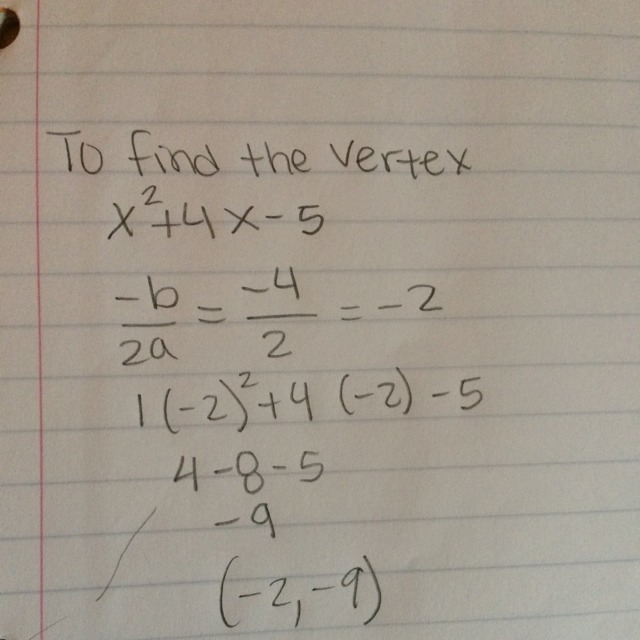 To find the vertex
x²+4x-5
-b/2a = -4/2 = -2
1(-2)²+4(-2)-5
4-8-5
-9
(-2,-9)